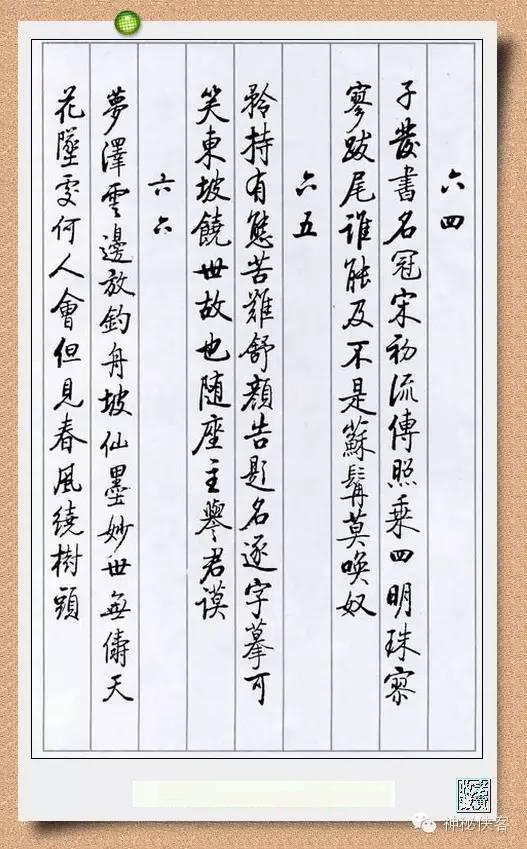 六四
子發書名冠宋初流傳照乘四明珠寥
寥跋尾誰能及不是蘇髯莫喚奴
六五
矜持有態苦難舒顏告題名逐字摹可
笑東坡饒世故也随座主譽君謨
六六
夢澤雲邊放釣舟坡仙墨妙世無儔天
花墜處何人會但見春風繞樹頭
神秘侠客